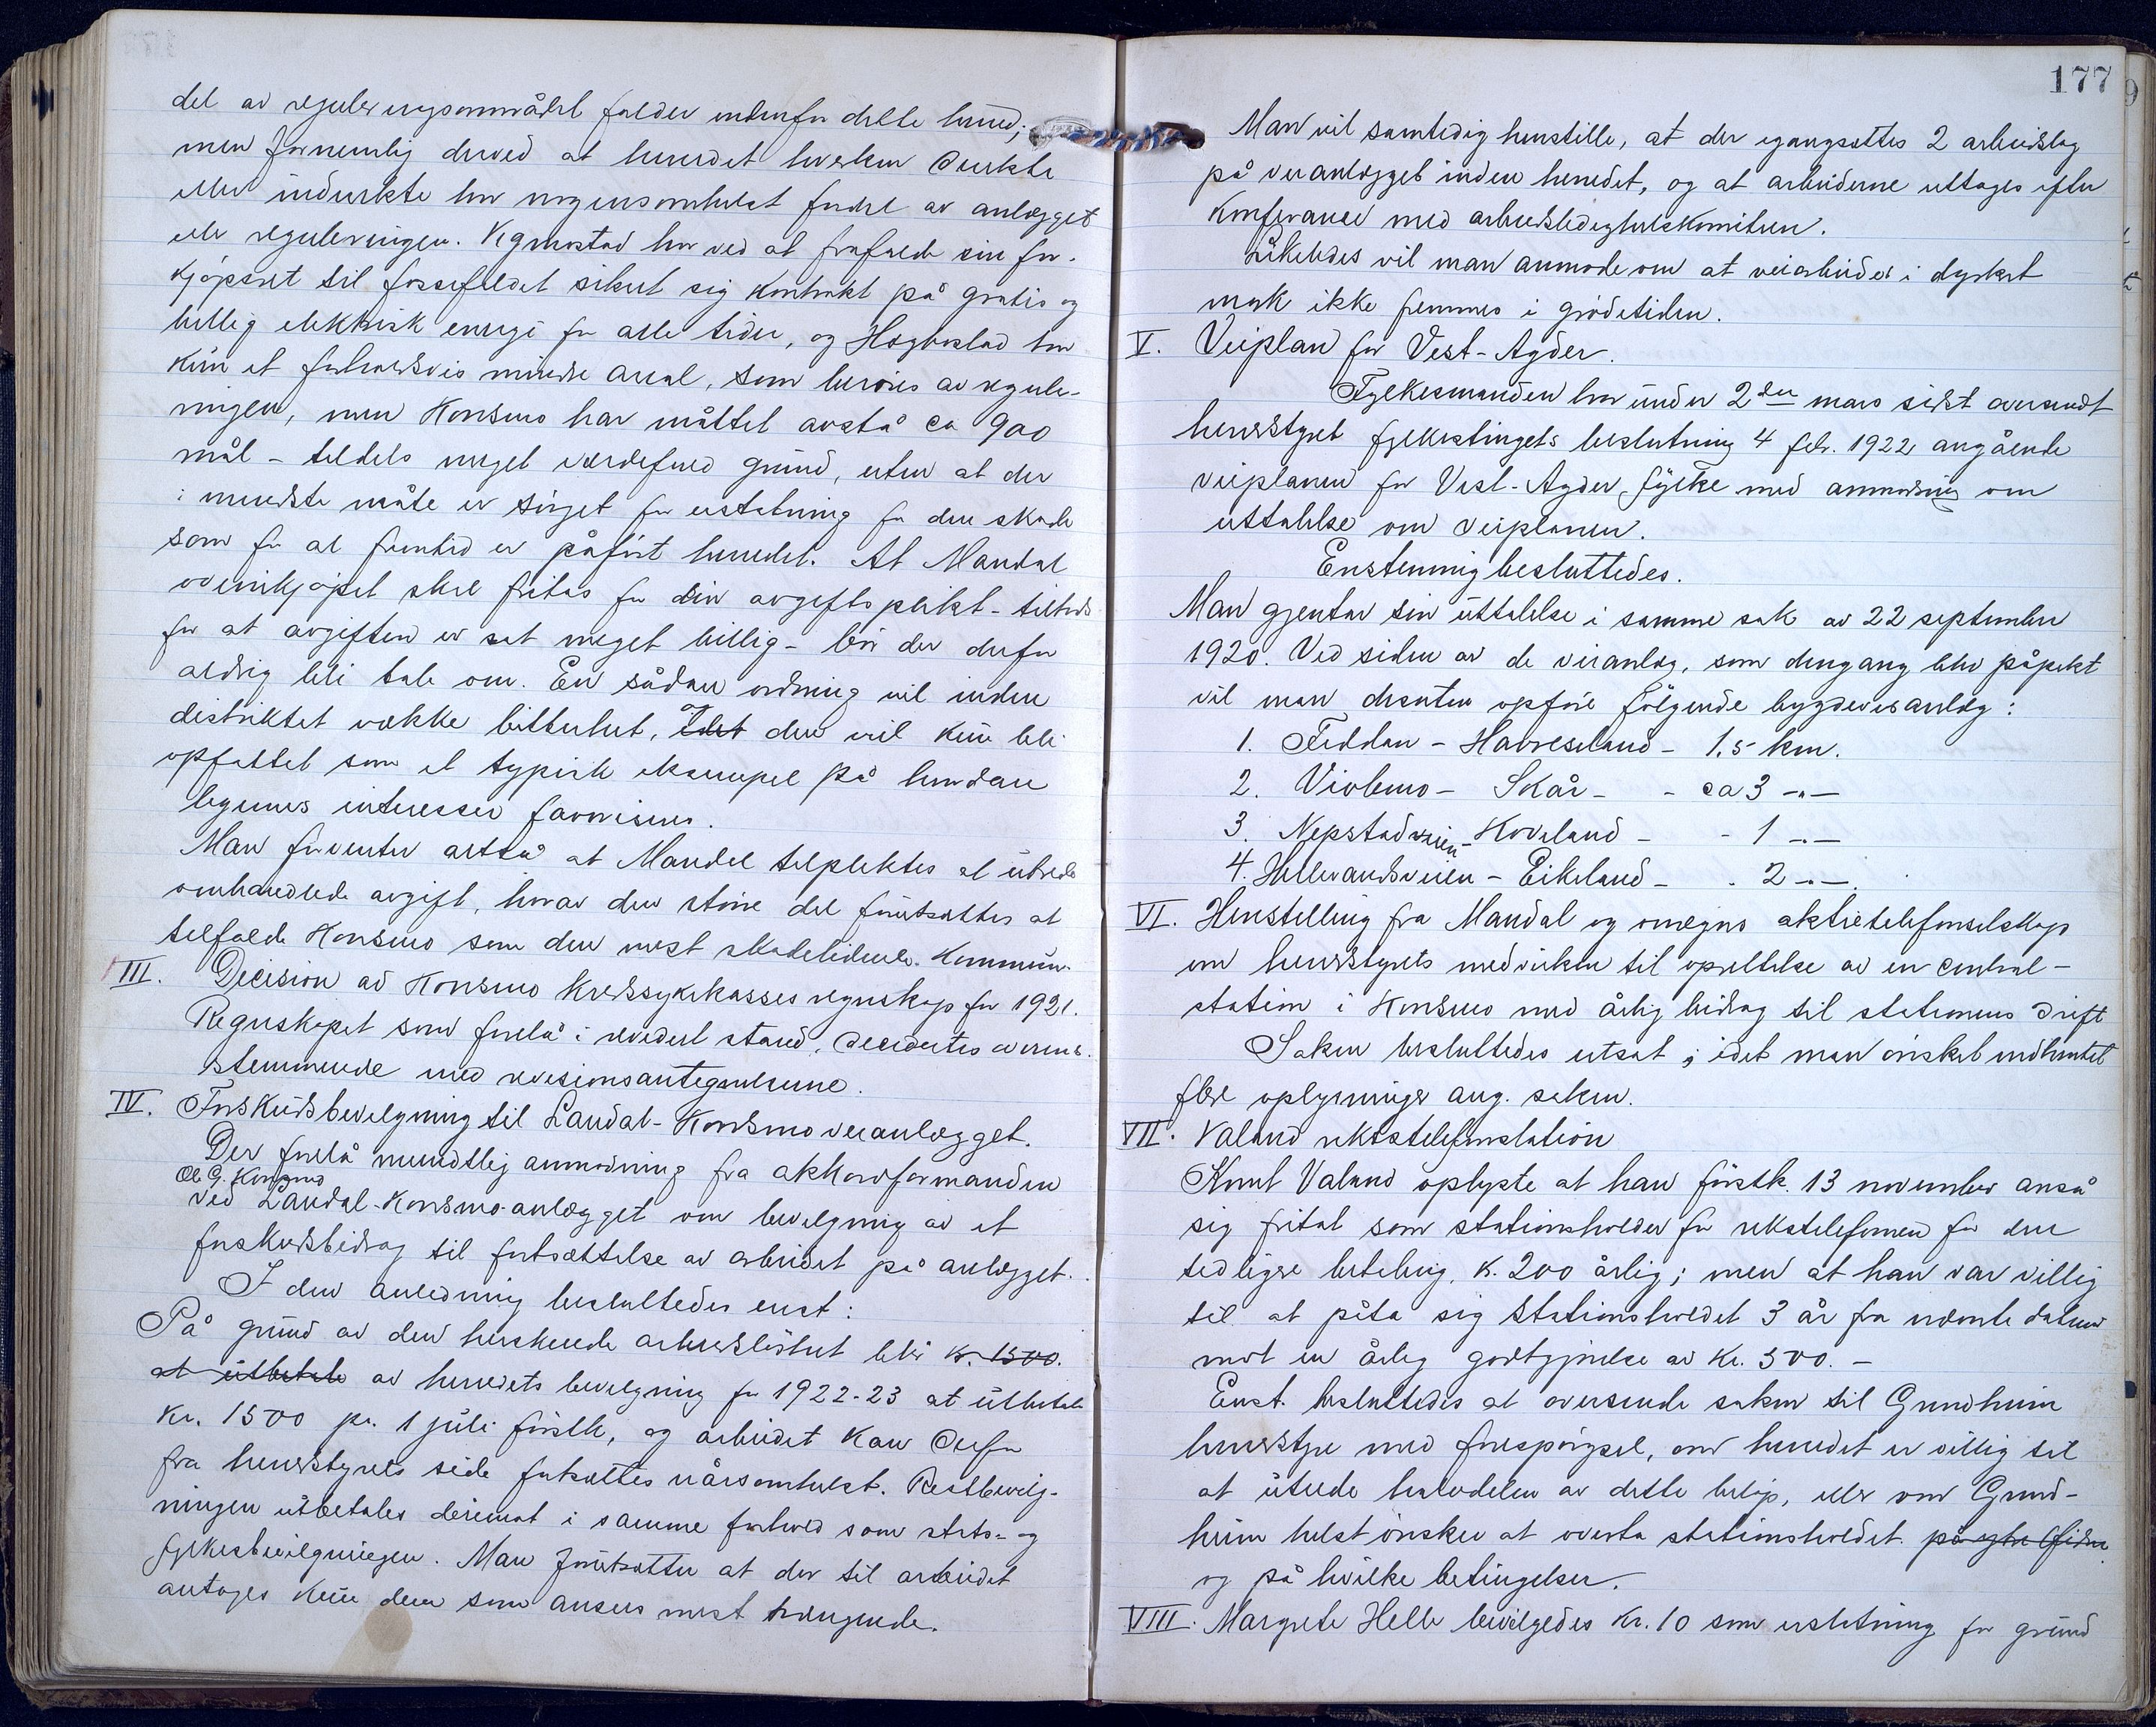 del av reguleringsområdet falder indenfor dette herred;
men fornemlig derved at herredet hverken direkte
eller indirekte har nogensomhelst fordel av anlægget
eller reguleringen. Vigmostad har ved at frafalde sin for-
kjøpsret til fossefaldet sikret sig kontrakt på gratis og
billig elektrisk energi for alle tider, og Hægbostad har
kun et forholdsvis mindre areal, som berøres av regule-
ringen, men Konsmo har måttet avstå ca 900
mål - tildels meget værdefuld grund, uten at der
i mindste måte er sørget for erstatning for den skade
som for al fremtid er påført herredet. At Mandal
ovenikjøpet skal fritas for sin avgiftsplikt - tiltrods
for at avgiften er sat meget billig - bør der derfor
aldrig bli tale om. En sådan ordning vil inden
distriktet vække bitterhet, og idet den vil kun bli
opfattet som et typisk eksempel på hvordan
byernes interesser favorisers.
Man forventer altså at Mandal tilpliktes at utrede
omhandlede avgift, hvorav den større del forutsættes at
tilfalde Konsmo som den mest skadelidende kommune.
III. Decision av Konsmo kredssykekasses regnskap for 1921.
Regnskapet som forelå i revidert stand, decidertes overens-
stemmende med revisionsantegnelserne.
IV. Forskudsbevilgning til Laudal-Konsmo veianlægget.
Der forelå mundtlig anmodning fra akkordformanden
Ol. G. Konsmo
ved Laudal-Konsmo-anlægget om bevilgning av et
forskudsbidrag til fortsættelse av arbeidet på anlægget.
I den anledning besluttedes enst:
På grund av den herskende arbeidsløshet blir kr. 1500.
at utbetale av herredets bevilgning for 1922-23 at utbetale
kr. 1500 pr. 1 juli førstk, og arbeidet kan derfor
fra herredstyrets side fortsættes nårsomhelst. Restbevilg-
ningen utbetales derimot i samme forhold som stats- og
fylkesbevilgningen. Man forutsætter at der til arbeidet
antages kun dem som ansees mest trængende.
177
Man vil samtidig henstille, at der igangsættes 2 arbeidslag
på veianlægget inden herredet, og at arbeiderne uttages efter
konferanse med arbeidsledighetskomiteen.
Likeledes vil man anmode om at veiarbeider i dyrket
mark ikke fremmes i grødetiden.
V. Veiplan for Vest-Agder.
Fylkesmanden har under 2den mars sidst oversendt
herredstyret fylkestingets beslutning 4 febr. 1922 angående
veiplanen for Vest-Agder fylke med anmodning om
uttalelse om veiplanen.
Enstemmig besluttedes.
Man gjentar sin uttalelse i samme sak av 22 september
1920. Ved siden av de veianlæg, som dengang blev påpekt
vil man desuten opføre følgende bygdeveianlæg:
1. Fiddan - Havreseland - 1,5 km.
2. Viblemo - Skår - - ca 3 -"-
3. Nepstadveien - Hoveland - - 1 -"-
4. Hellevandsveien - Eikeland - - 2 -"-.
VI. Henstelling fra Mandal og omegns aktietelefonselskap
om herredstyrets medvirken til oprettelse av en central-
station i Konsmo med årlig bidrag til stationens drift
Saken besluttedes utsat, idet man ønsket indhentet
flere oplysninger ang. saken.
VII. Valand rikstelefonstation
Knut Valand oplyste at han førstk. 13 november anså
sig fritat som stationsholder for rikstelefonen for den
tidligere betaling, k. 200 årlig; men at han var villig
til at påta sig stationsholdet 3 år fra nævnte datum
mot en årlig godtgjørelse av kr. 300.-
Enst. besluttedes at oversende saken til Grindheim
herredstyre med forespørgsel, om herredet er villig til
at utrede halvdelen av dette beløp, eller om Grind-
heim helst ønsker at overta stationsholdet på
og på hvilke betingelser.
VIII. Margrete Helle bevilgedes kr. 10 som erstatning for grund